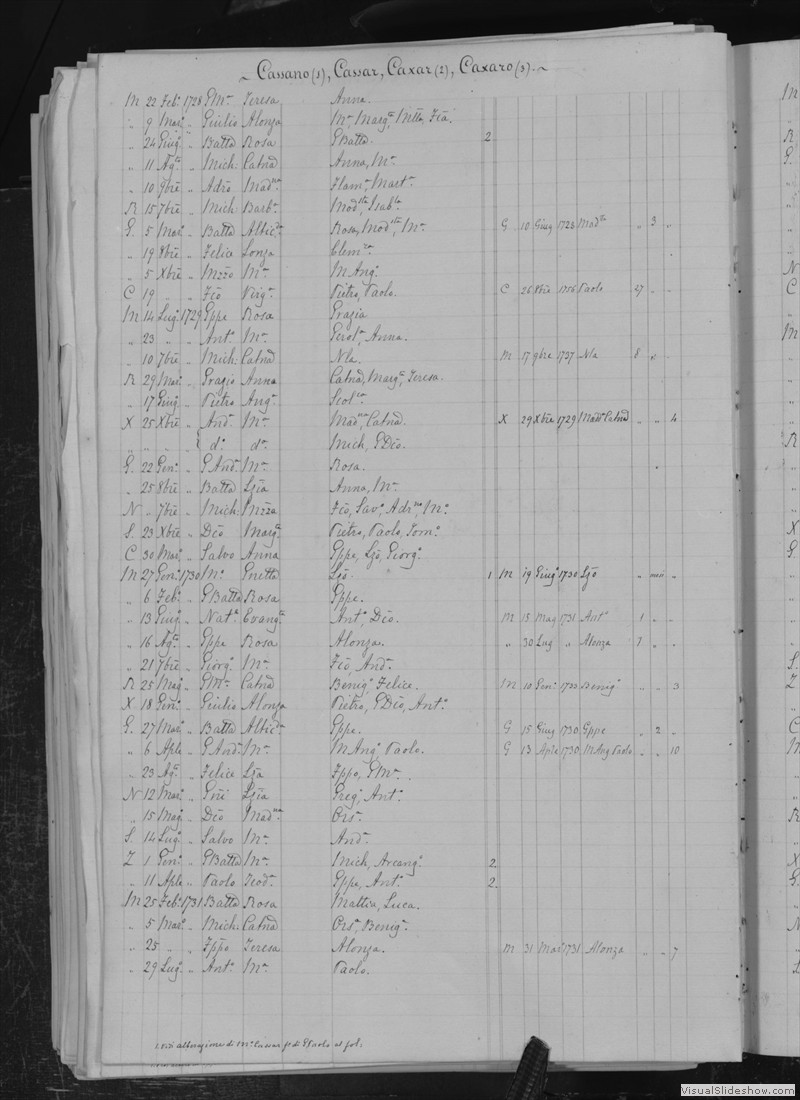 ~ Cassano(1), Cassar, Caxar(2), Caxaro(3). ~
M 22 Feb.o 1728 GM.a Teresa Anna.
" 9 Mar.o " Giulio Alonza M.a Marg.ta, Mtta, Fca.
" 24 Giug.o " Batta Rosa GBatta. 2
" 11 Ag.to " Mich: Catna Anna, M.a
" 10 9bre " Adrõ Mad.na Flam.a Mart.a
R 15 7bre " Mich: Barb.a Mod.sta, Isab.lla
G. 5 Mar.o " Batta Albic.a Rosa, Mod.sta, M.a G 10 Giug 1728 Mod.sta " 3 "
" 19 8bre " Felice Lonza Clem.za
" 5 Xbre " Mzzo M.a M Ang.a
C 19 " " Fcõ Virg.a Pietro, Paolo. C 26 8bre 1756 Paolo 27 " "
M 14 Lug.o 1729 Gppe Rosa Grazia
" 23 " " Ant.o M.a Gerol.a, Anna.
" 10 7bre " Mich: Catna Nla. M 17 9bre 1737 Nla 8 "
R 29 Mar.o " Grazio Anna Catna, Marg.ta, Teresa.
" 17 Giug.o " Pietro Ang.a Scol.ca
X 25 Xbre " And.a M.a Mad.na Catna. X 29 Xbre 1729 Mad.na Catna " " 4
" " " " d.o d.a Mich, GDcõ.
G. 22 Gen.o " GAnd.a M.a Rosa.
" 25 8bre " Batta Lzia Anna, M.a
N " 7bre " Mich: Mzza Fcõ, Sav.o, Adr.na, M.a
S. 23 Xbre " Dcõ Marg.ta Pietro, Paolo, Tom.o
C 30 Mar.o " Salvo Anna Gppe, Lzõ, Giorg.o
M 27 Gen.o 1730 M.o Gnetta Lzõ. 1 M 19 Giug.o 1730 Lzõ " mesi "
" 6 Feb.o " GBatta Rosa Gppe.
" 13 Giug.o " Nat.e Evang.a Ant.o, Dcõ. M 15 Mag 1731 Ant.o 1 " "
" 16 Ag.to " Gppe Rosa Alonza. " 30 Lug " Alonza 7 " "
" 21 7bre " Giorg.o M.a Fcõ, And.a
R 25 Mag.o " GM.a Catna Benig.o, Felice. M 10 Gen.o 1733 Benig.o " " 3
X 18 Gen.o " Giulio Alonza Pietro, GDcõ, Ant.o
G. 27 Mar.o " Batta Albic.a Gppe. G 15 Giug 1730 Gppe " 2 "
" 6 Aple " GAnd.a M.a M Ang.o Paolo. G 13 Aple 1730 M Ang Paolo " " 10
" 23 Ag.to " Felice Lzia Fppo, GM.a
N 12 Mar.o " Gnẽ Lzia Greg.o, Ant.o
" 15 Mag.o " Dcõ Mad.na Ors.a
S. 14 Lug.o " Salvo M.a And.a
Z 1 Gen.o " GBatta M.a Mich, Arcang.o 2.
" 11 Aple " Paolo Teod.a Gppe, Ant.o 2.
M 25 Feb.o 1731 Batta Rosa Mattia, Luca.
" 5 Mar.o " Mich: Catna Ors.a, Benig.a
" 25 " " Fppo Teresa Alonza. M 31 Mar.o 1731 Alonza " " 7
" 29 Lug.o " Ant.o M.a Paolo.
di M.a Cassar di GPaolo al fol.
VisualSlideshow.com